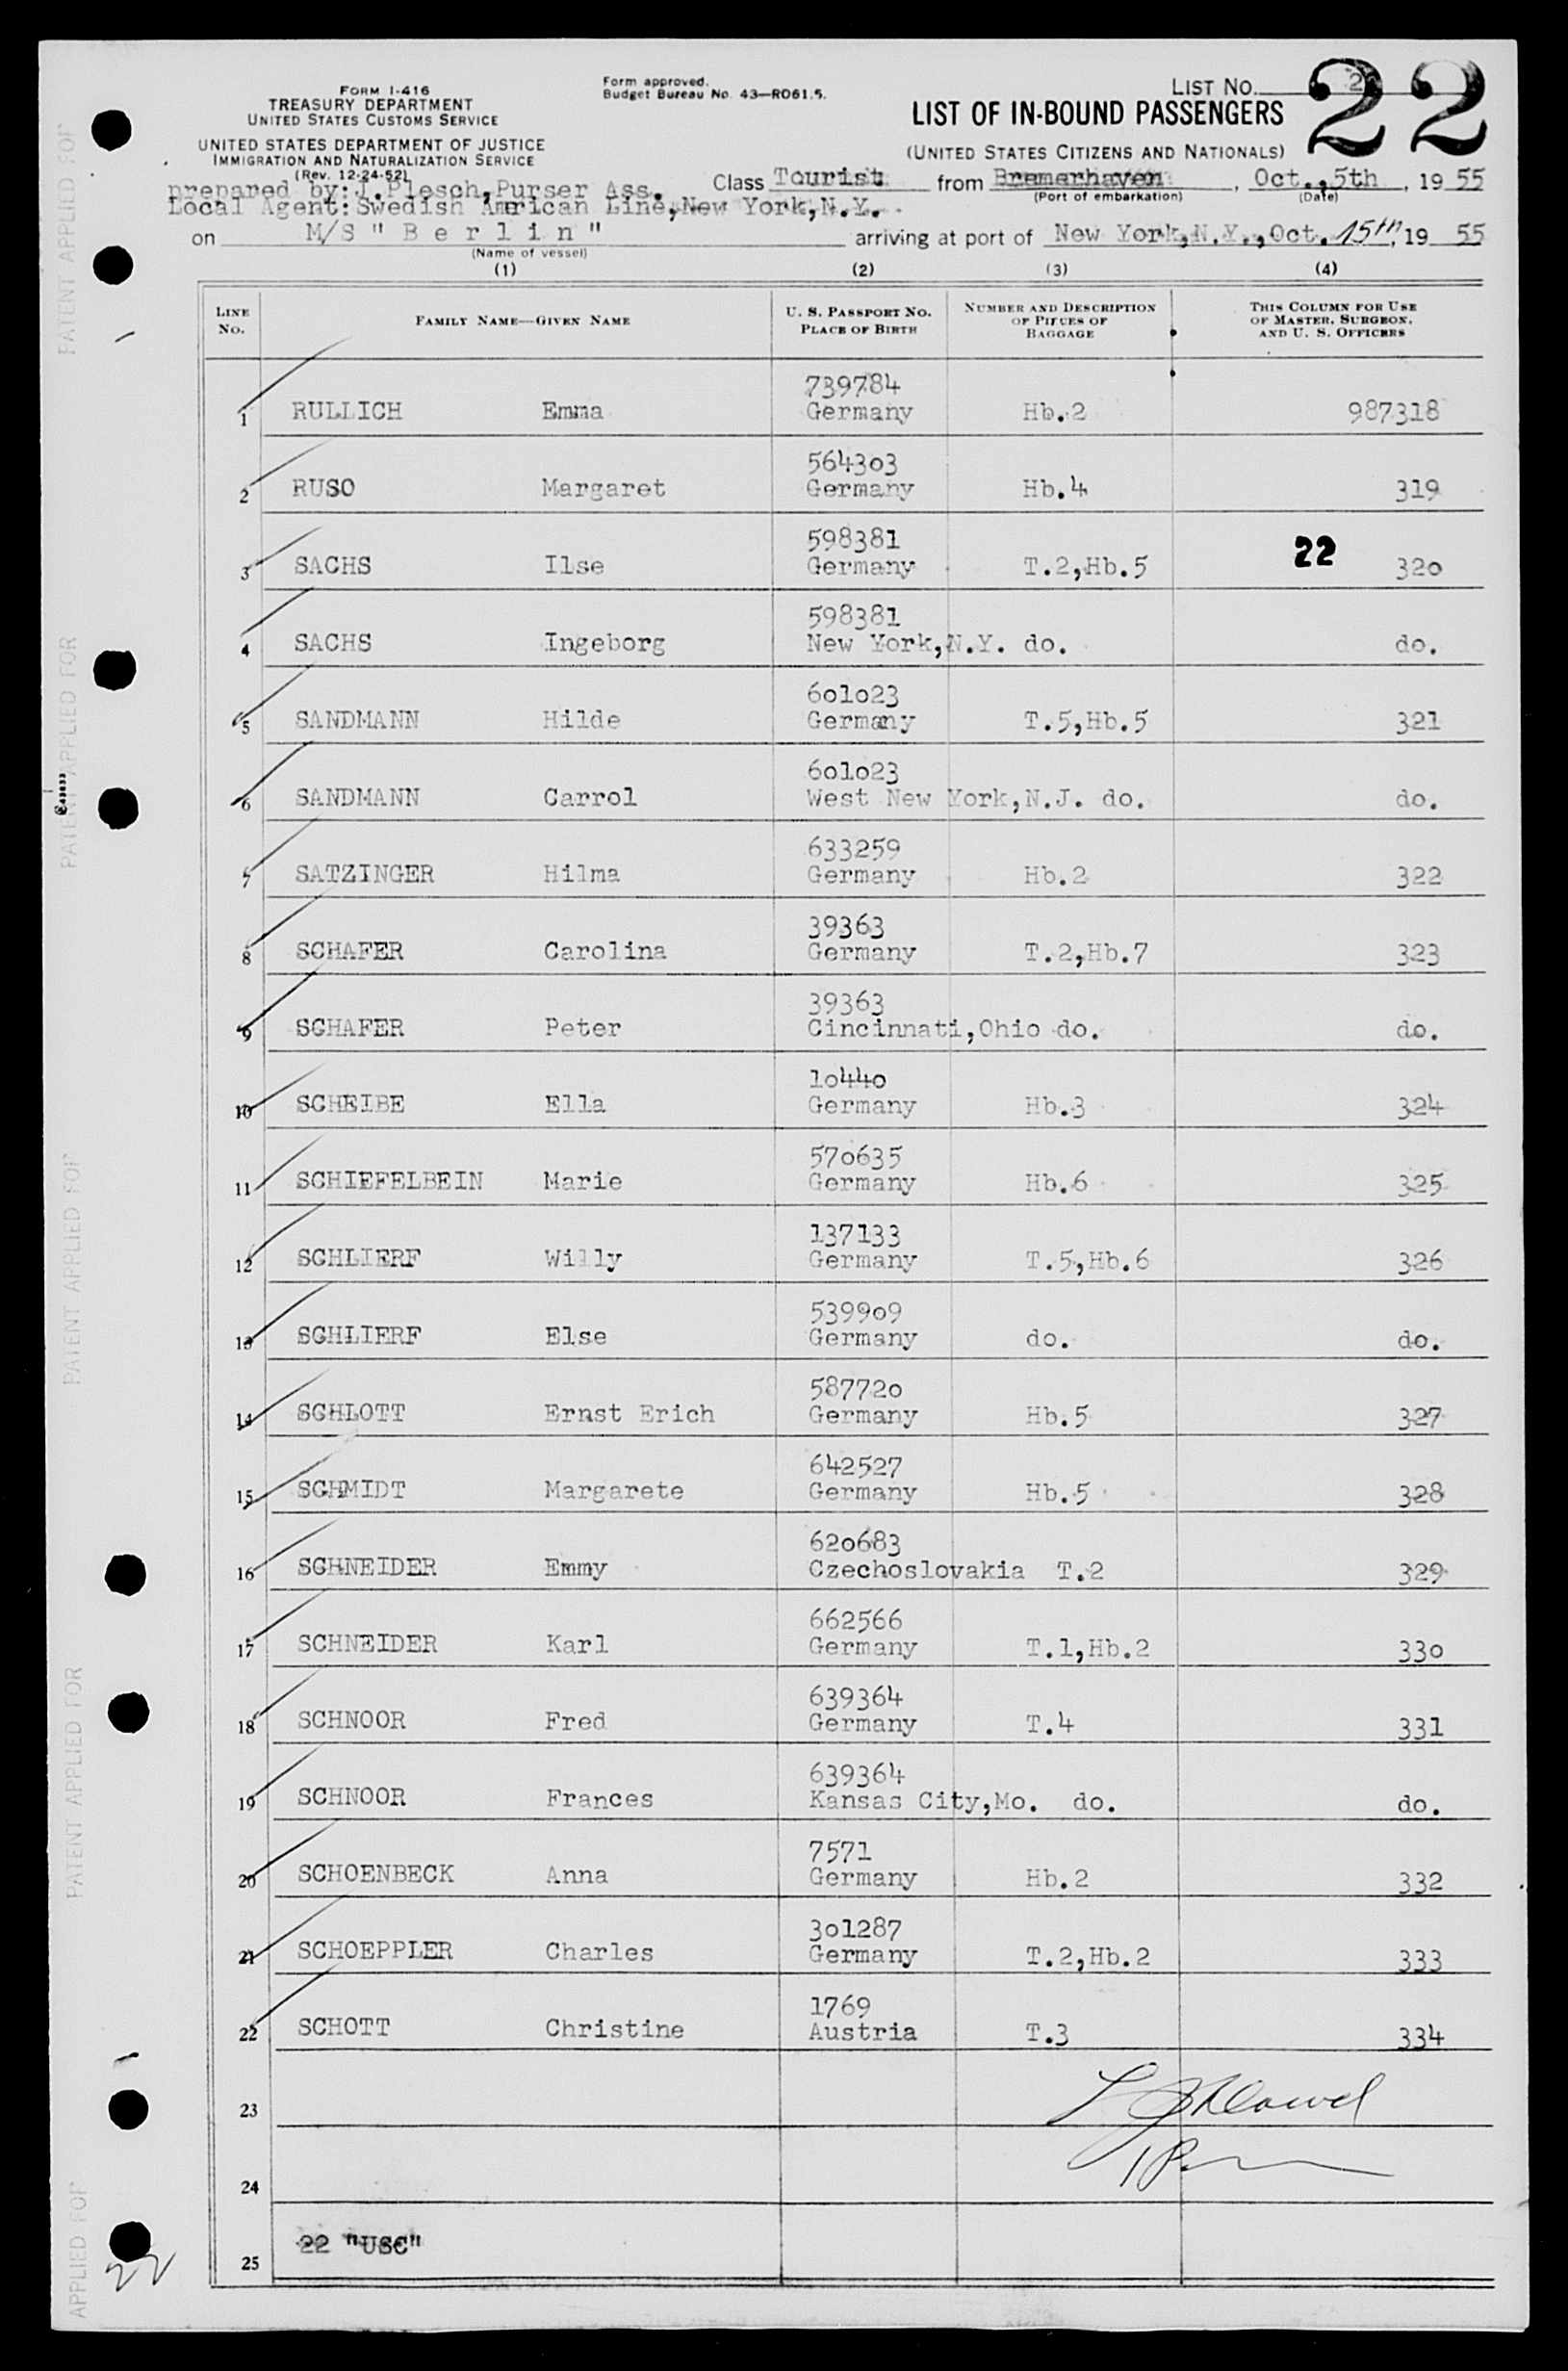 FORM I-416
TREASURY DEPARTMENT
UNITED STATES CUSTOMS SERVICE
UNITED STATES DEPARTMENT OF JUSTICE
IMMIGRATION AND NATURALIZATION SERVICE
(Rev. 12-24-52)
Form approved.
Budget Bureau No. 43—RO61.5.
LIST NO. 2
22
LIST OF IN-BOUND PASSENGERS
(UNITED STATES CITIZENS AND NATIONALS)
prepared by: J. Plesch, Purser Ass.
Local Agent: Swedish American Line, New York, N.Y.
Class Tourist from Bremerhaven, Oct., 5th, 19 55
(Port of embarkation) (Date)
on M/S " B e r l i n " arriving at port of New York, N.Y., Oct. 15th, 19 55
(Name of vessel)
(1) (2) (3) (4)
LINE NO. FAMILY NAME—GIVEN NAME U. S. PASSPORT NO. PLACE OF BIRTH NUMBER AND DESCRIPTION OF PIECES OF BAGGAGE THIS COLUMN FOR USE OF MASTER, SURGEON, AND U. S. OFFICERS
739784
1 RULLICH Emma Germany Hb.2 987318
564303
2 RUSO Margaret Germany Hb.4 319
598381 22
3 SACHS Ilse Germany T.2,Hb.5 320
598381
4 SACHS Ingeborg New York,N.Y. do. do.
601023
5 SANDMANN Hilde Germany T.5,Hb.5 321
601023
6 SANDMANN Carrol West New York,N.J. do. do.
633259
7 SATZINGER Hilma Germany Hb.2 322
39363
8 SCHAFER Carolina Germany T.2,Hb.7 323
39363
9 SCHAFER Peter Cincinnati,Ohio do. do.
10440
10 SCHEIBE Ella Germany Hb.3 324
570635
11 SCHIEFELBEIN Marie Germany Hb.6 325
137133
12 SCHLIERF Willy Germany T.5,Hb.6 326
539909
13 SCHLIERF Else Germany do. do.
587720
14 SCHLOTT Ernst Erich Germany Hb.5 327
642527
15 SCHMIDT Margarete Germany Hb.5 328
620683
16 SCHNEIDER Emmy Czechoslovakia T.2 329
662566
17 SCHNEIDER Karl Germany T.1,Hb.2 330
639364
18 SCHNOOR Fred Germany T.4 331
639364
19 SCHNOOR Frances Kansas City,Mo. do. do.
7571
20 SCHOENBECK Anna Germany Hb.2 332
301287
21 SCHOEPPLER Charles Germany T.2,Hb.2 333
1769
22 SCHOTT Christine Austria T.3 334
23
24
25 22 "USC"
22
PATENT APPLIED FOR
PATENT APPLIED FOR
PATENT APPLIED FOR
PATENT APPLIED FOR
APPLIED FOR